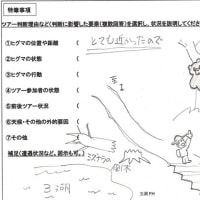 特徴事項
ツアー判断理由など(判断に影響した要素(複数回答)を選択し、状況を説明してください
①ヒグマの位置や距離 ( とても近かったので
②ヒグマの状態 (
③ヒグマの行動 (
④ツアー参加者の状態 (
⑤前後ツアー状況 (
⑥天候・その他の外的要因 (
⑦その他 (
補足(遭遇状況など。図示も可。)
ミズナラの
倒木
三湖